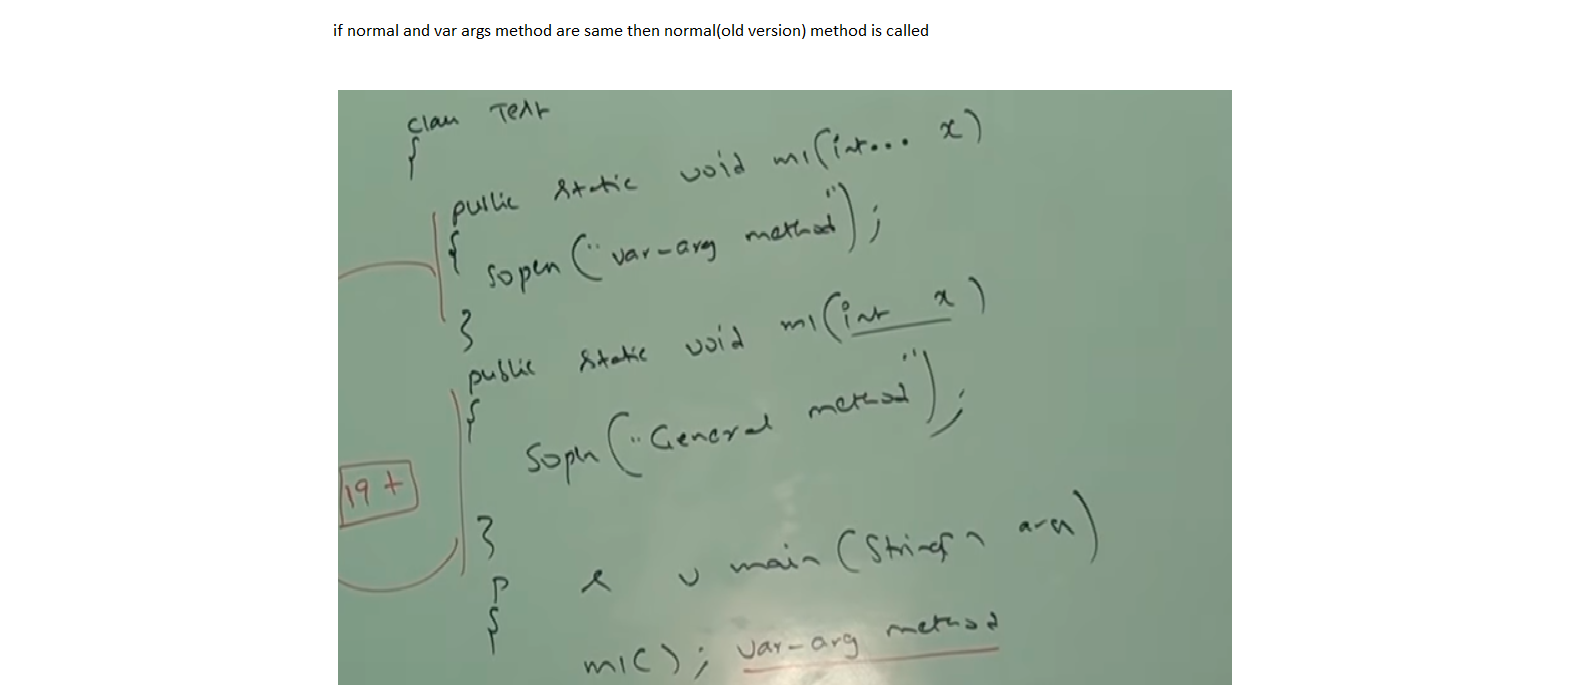 if normal and var args method are same then normal(old version) method is called
class Test
{
public static void m1(int... x)
{
sopln("var-arg method");
}
public static void m1(int x)
{
sopln("General method");
19 +
}
p s v main(String[] args)
{
m1(); var-arg method